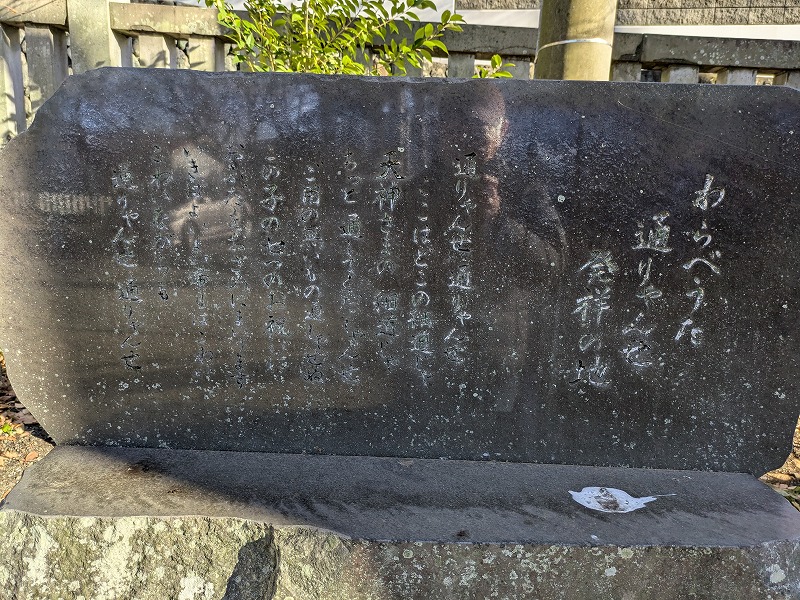 わらべうた
通りゃんせ
発祥の地
通りゃんせ 通りゃんせ
ここはどこの細道じゃ
天神さまの 細道じゃ
ちっと 通して下しゃんせ
ご用の無いもの通しゃせぬ
この子の七つのお祝いに
お札を納めにまいります
行きはよいよい 帰りはこわい
こわいながらも
通りゃんせ 通りゃんせ